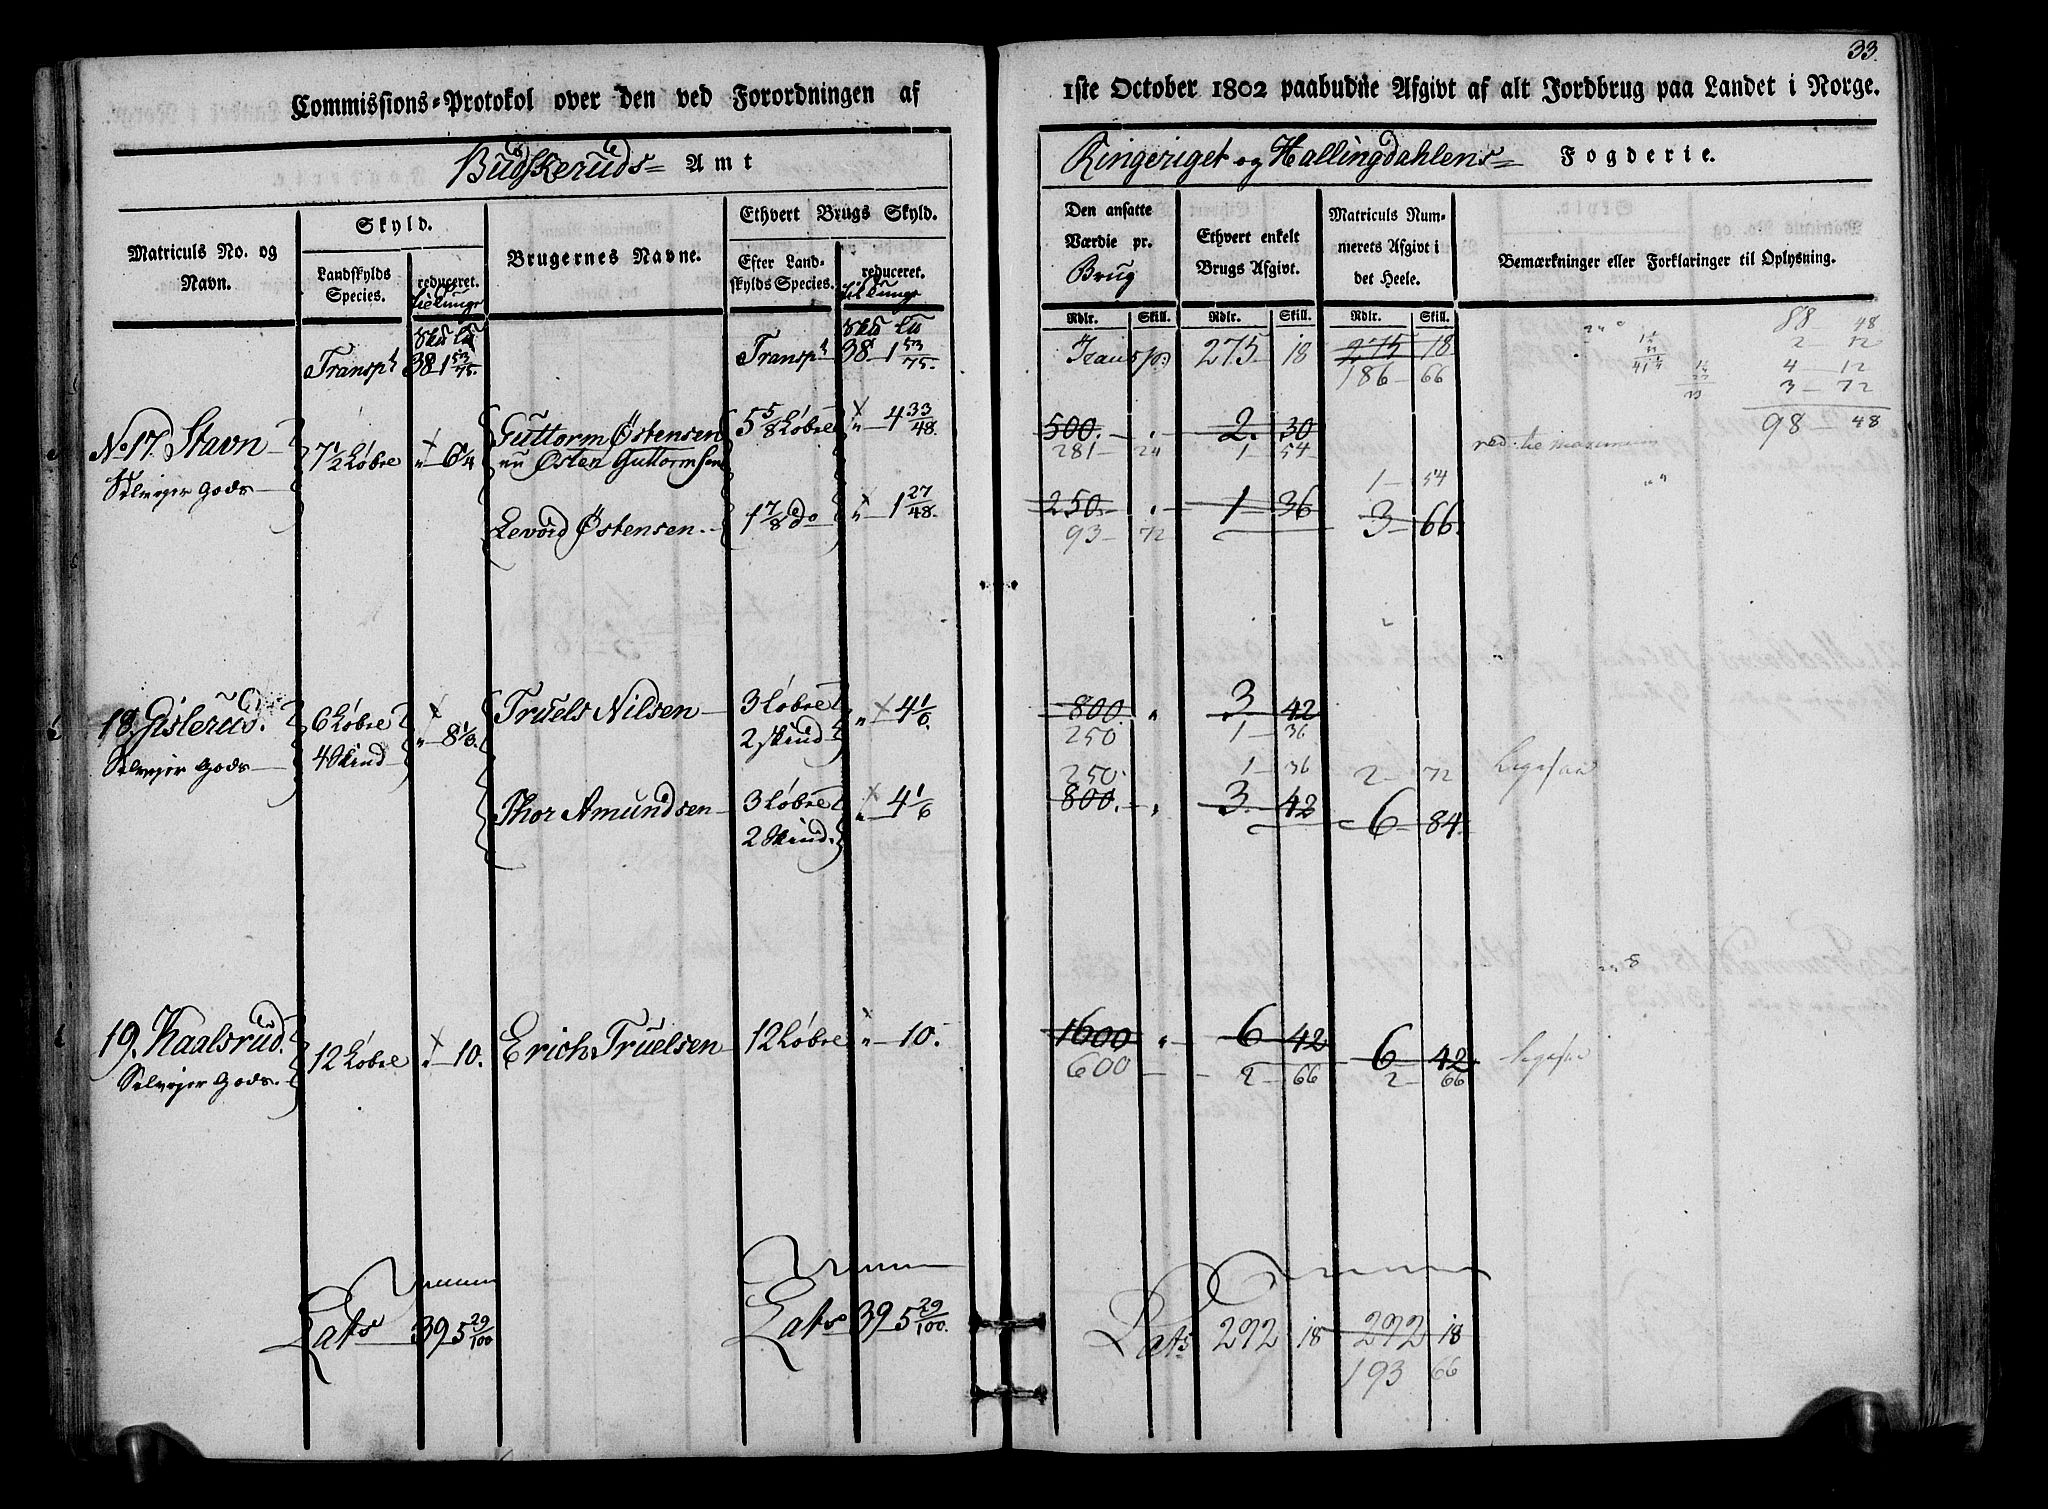 33.
Commissions-Protokol over den ved Forordningen af
1ste October 1802 paabudne Afgivt af alt Jordbrug paa Landet i Norge.
Budskeruds- Amt
Ringeriget og Hallingdahlens- Fogderie.
Matriculs No. og Navn.
Skyld.
Landskylds Species.
reduceret.
Brugernes Navne.
Ethvert Brugs Skyld.
Efter Landskylds Species.
reduceret.
til Tunge
Den ansatte Værdie pr. Brug
Ethvert enkelt Brugs Afgivt.
Matriculs Nummerets Afgivt i det Heele.
Bemærkninger eller Forklaringer til Oplysning.
Rdlr. Skill. Rdlr. Skill. Rdlr. Skill.
Transpt 38 1 53/75. Transpt 38 1 53/75. Transp. 275 18 275 18
186 66
88 48
2 12
4 12
3 72
98 48
No 17. Stavn 7 1/2 Løbre " 6 1/4 Guttorm Østensen 5 5/8 Løbre " 4 33/48. 500. 2. 30
nu Østen Guttormsen 281 24 1 54
Selvejer Gods
1 54
Levord Østensen. 1 7/8 do " 1 27/48. 250. 1 36 3 66.
93 72
18. Gislerud. 6 Løbre 4 Skind " 8 1/3. Truels Nilsen 3 Løbre 2 skind " 4 1/6. 800. " 3 42
Selvejer Gods
250 1 36
250. 1 36 2 72
Thor Amundsen 3 Løbre 2 Skind. " 4 1/6 800. " 3. 42 6 84.
19. Kaalsrud. 12 Løbre " 10. Erich Truelsen 12 Løbre " 10. 1600 " 6 42 6 42
Selvejer Gods.
600 2 66 2 66
Lats 39 5 29/100 Lats 39 5 29/100. Lats 292 18 292 18
193 66